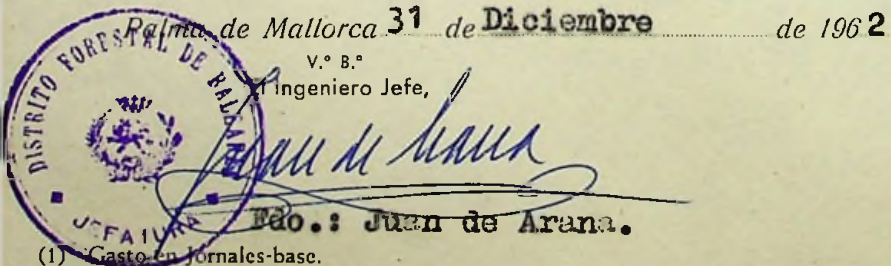 Palma de Mallorca 31 de Diciembre de 1962
V.° B.°
El Ingeniero Jefe,
DISTRITO FORESTAL DE BALEARES
JEFATURA
Juan de Arana
Fdo.: Juan de Arana.
(1) Gasto en Jornales-base.